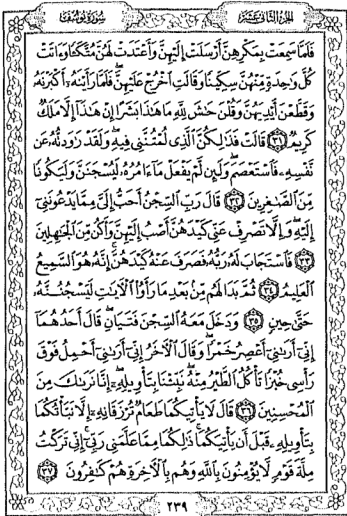 الجزء الثاني عشر
سورة يوسف
فَلَمَّا سَمِعَتْ بِمَكْرِهِنَّ أَرْسَلَتْ إِلَيْهِنَّ وَأَعْتَدَتْ لَهُنَّ مُتَّكَـًٔا وَءَاتَتْ
كُلَّ وَٰحِدَةٍ مِّنْهُنَّ سِكِّينًا وَقَالَتِ ٱخْرُجْ عَلَيْهِنَّ فَلَمَّا رَأَيْنَهُۥٓ أَكْبَرْنَهُۥ
وَقَطَّعْنَ أَيْدِيَهُنَّ وَقُلْنَ حَٰشَ لِلَّهِ مَا هَٰذَا بَشَرًا إِنْ هَٰذَآ إِلَّا مَلَكٌ
كَرِيمٌ ٣١ قَالَتْ فَذَٰلِكُنَّ ٱلَّذِى لُمْتُنَّنِى فِيهِ وَلَقَدْ رَٰوَدتُّهُۥ عَن
نَّفْسِهِۦ فَٱسْتَعْصَمَ وَلَئِن لَّمْ يَفْعَلْ مَآ ءَامُرُهُۥ لَيُسْجَنَنَّ وَلَيَكُونًا
مِّنَ ٱلصَّٰغِرِينَ ٣٢ قَالَ رَبِّ ٱلسِّجْنُ أَحَبُّ إِلَىَّ مِمَّا يَدْعُونَنِىٓ
إِلَيْهِ وَإِلَّا تَصْرِفْ عَنِّى كَيْدَهُنَّ أَصْبُ إِلَيْهِنَّ وَأَكُن مِّنَ ٱلْجَٰهِلِينَ
٣٣ فَٱسْتَجَابَ لَهُۥ رَبُّهُۥ فَصَرَفَ عَنْهُ كَيْدَهُنَّ إِنَّهُۥ هُوَ ٱلسَّمِيعُ
ٱلْعَلِيمُ ٣٤ ثُمَّ بَدَا لَهُم مِّنۢ بَعْدِ مَا رَأَوُا۟ ٱلْـَٔايَٰتِ لَيَسْجُنُنَّهُۥ
حَتَّىٰ حِينٍ ٣٥ وَدَخَلَ مَعَهُ ٱلسِّجْنَ فَتَيَانِ قَالَ أَحَدُهُمَآ
إِنِّىٓ أَرَىٰنِىٓ أَعْصِرُ خَمْرًا وَقَالَ ٱلْـَٔاخَرُ إِنِّىٓ أَرَىٰنِىٓ أَحْمِلُ فَوْقَ
رَأْسِى خُبْزًا تَأْكُلُ ٱلطَّيْرُ مِنْهُ نَبِّئْنَا بِتَأْوِيلِهِۦٓ إِنَّا نَرَىٰكَ مِنَ
ٱلْمُحْسِنِينَ ٣٦ قَالَ لَا يَأْتِيكُمَا طَعَامٌ تُرْزَقَانِهِۦٓ إِلَّا نَبَّأْتُكُمَا
بِتَأْوِيلِهِۦ قَبْلَ أَن يَأْتِيَكُمَا ذَٰلِكُمَا مِمَّا عَلَّمَنِى رَبِّىٓ إِنِّى تَرَكْتُ
مِلَّةَ قَوْمٍ لَّا يُؤْمِنُونَ بِٱللَّهِ وَهُم بِٱلْـَٔاخِرَةِ هُمْ كَٰفِرُونَ ٣٧
٢٣٩